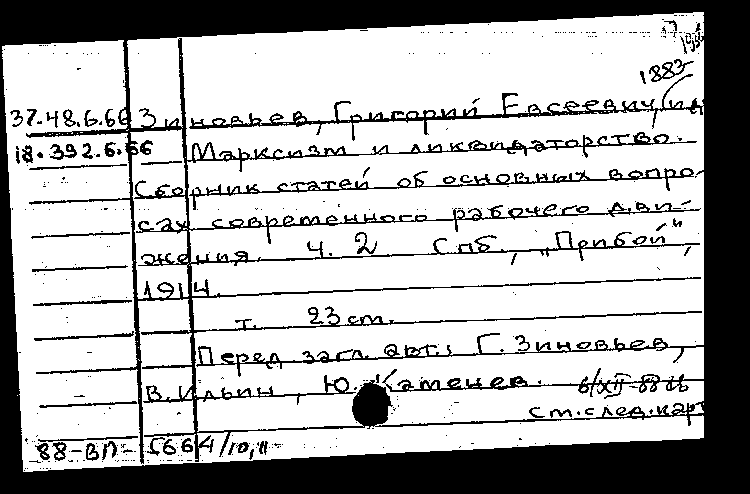 1883-
37.48.6.66 Зиновьев, Григорий Евсеевич, и др
18.392.6.66 Марксизм и ликвидаторство.
Сборник статей об основных вопро-
сах современного рабочего дви-
жения. Ч. 2 Спб., „Прибой",
1914.
т. 23 cm.
Перед загл. авт.: Г. Зиновьев,
В. Ильин, Ю. Каменев.
см. след. карт
88-ВП- 5664/10,11